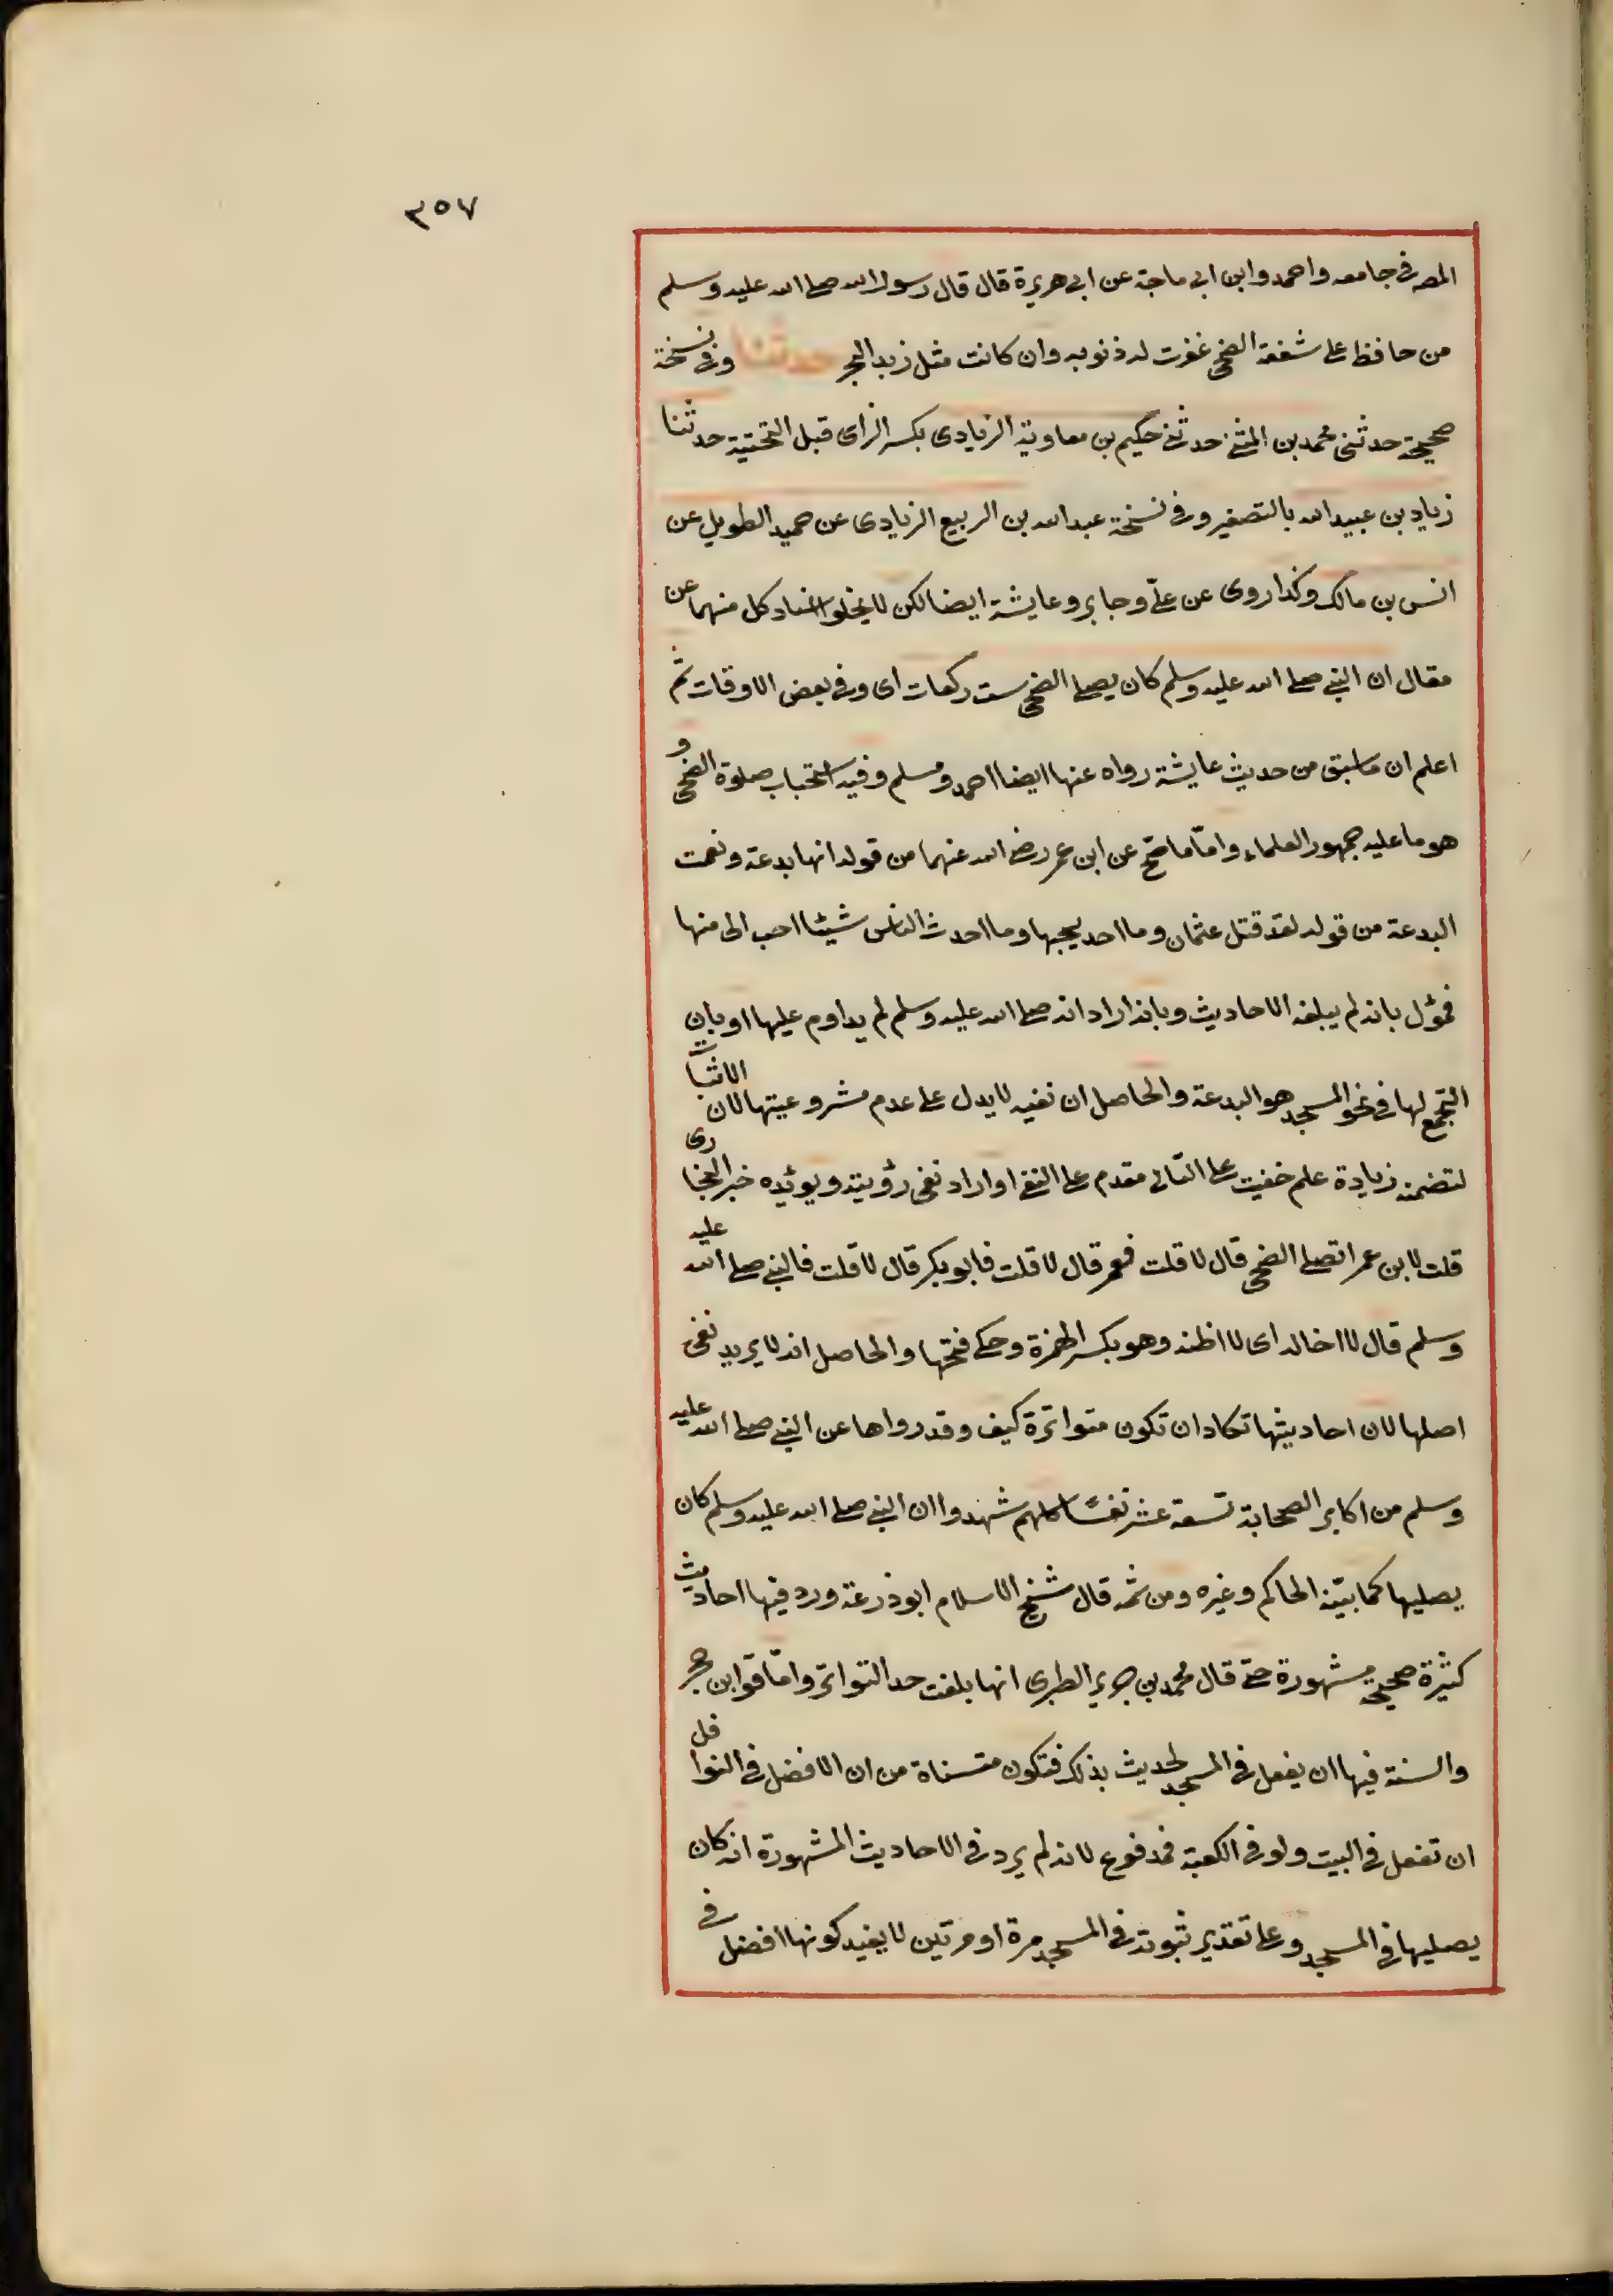 ٣٥٧
المص في جامعه واحمد وابن ابي ماجة عن ابي هريرة قال قال رسول الله صلى الله عليه وسلم
من حافظ على شفعة الضحى غفرت له ذنوبه وان كانت مثل زبد البحر حدثنا وفي نسخة
صحيحة حدثني محمد بن المثنى حدثني حكيم بن معاوية الزيادي بكسر الزاى قبل التحتية حدثنا
زياد بن عبيد الله بالتصغير وفي نسخة عبد الله بن الربيع الزيادي عن حميد الطويل عن
انس بن مالك وكذا روى عن علي وجابر وعايشة ايضا لكن لا يخلوا اسناد كل منهما عن
مقال ان النبي صلى الله عليه وسلم كان يصلي الضحى ست ركعات اى وفي بعض الاوقات ثم
اعلم ان ما سبق من حديث عايشة رواه عنها ايضا احمد ومسلم وفيه استحباب صلوة الضحى و
هو ما عليه جمهور العلماء واما ما صح عن ابن عمر رضى الله عنهما من قوله انها بدعة ونعمت
البدعة من قوله لقد قتل عثمان وما احد يحبها وما احدث الناس شيئا احب الى منها
فمؤل بانه لم يبلغه الاحاديث وبانه اراد انه صلى الله عليه وسلم لم يداوم عليها او بان
التجمع لها في نحو المسجد هو البدعة والحاصل ان نفيه لا يدل على عدم مشروعيتها لان الاثبات
لتضمنه زيادة علم خفيت على النافي مقدم على النفي او اراد نفى رؤيته ويؤيده خبر البخارى
قلت لابن عمر اتصلى الضحى قال لا قلت فعمر قال لا قلت فابو بكر قال لا قلت فالنبي صلى الله عليه
وسلم قال لا اخاله اى لا اظنه وهو بكسر الهمزة وحكى فتحها والحاصل انه لا يريد نفى
اصلها لان احاديثها تكاد ان تكون متواترة كيف وقد رواها عن النبي صلى الله عليه
وسلم من اكابر الصحابة تسعة عشر نفسًا كلهم شهدوا ان النبي صلى الله عليه وسلم كان
يصليها كما بيّنه الحاكم وغيره ومن ثمه قال شيخ الاسلام ابو ذرعة ورد فيها احاديث
كثيرة صحيحة مشهورة حتى قال محمد بن جرير الطبرى انها بلغت حد التواتر وامّا قول ابن حجر
والسنة فيها ان يفعل في المسجد لحديث بذلك فتكون مستثناة من ان الافضل في النوافل
ان تفعل في البيت ولو في الكعبة فمدفوع لانه لم يرد في الاحاديث المشهورة انه كان
يصليها في المسجد وعلى تقدير ثبوته في المسجد مرة او مرتين لا يفيد كونها افضل في